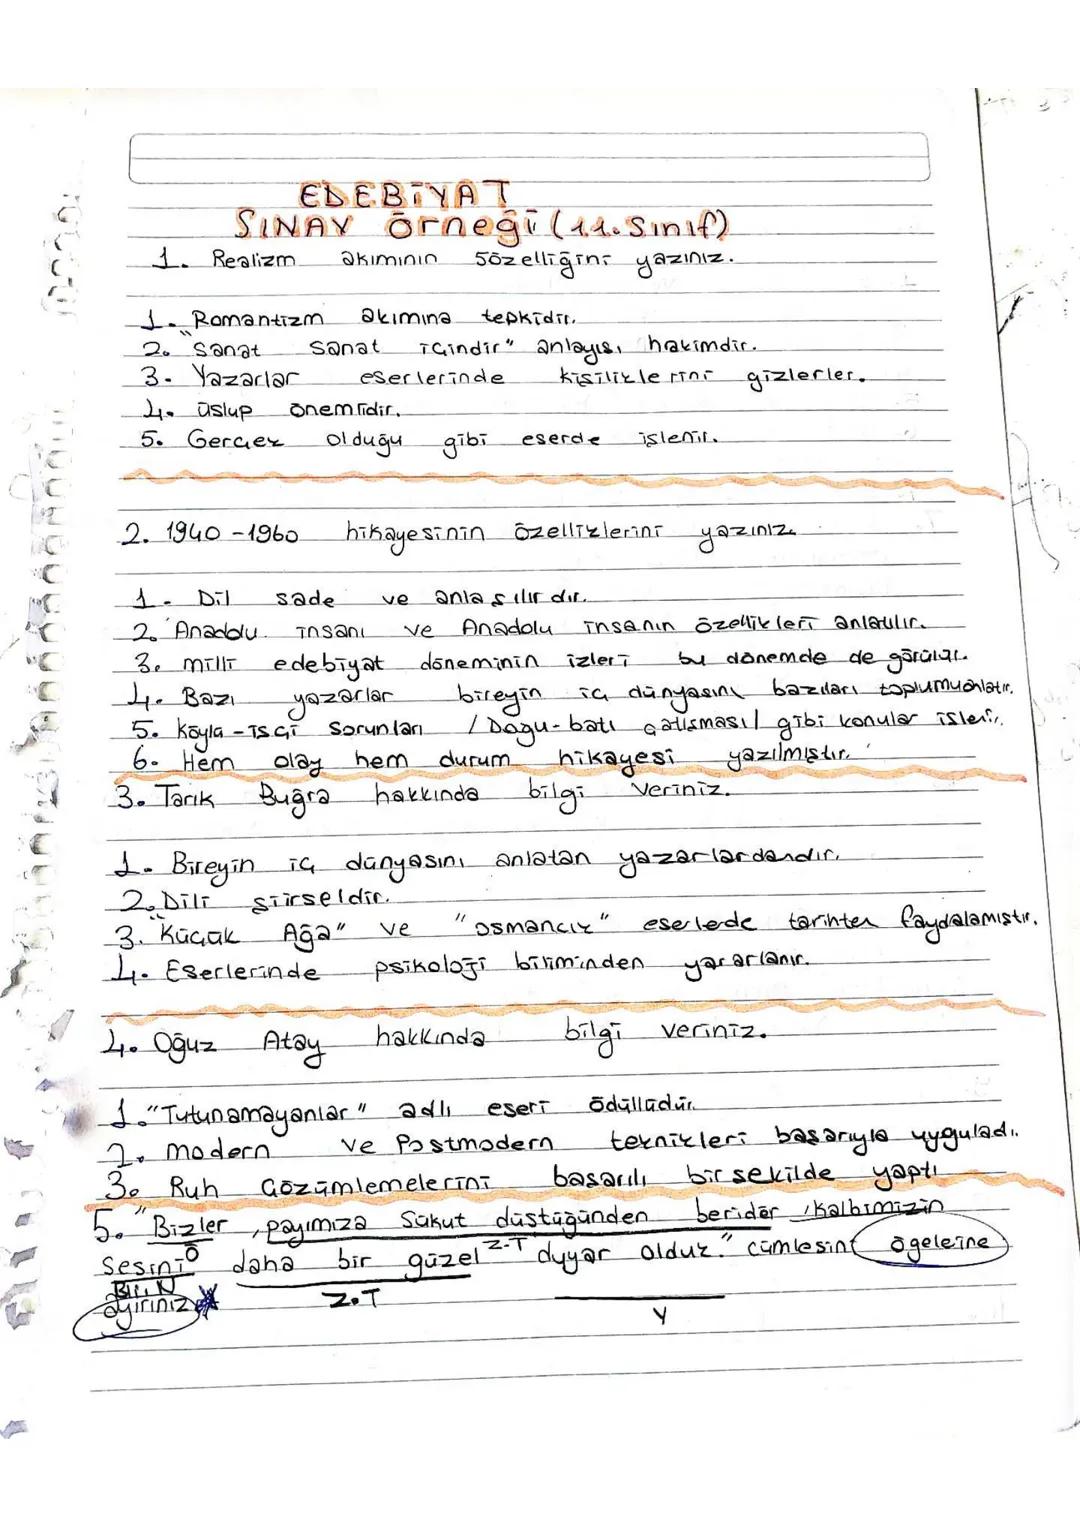 EDEBİYAT
SINAV Örneği (11.Sınıf)
1. Realizm akımının 5özelliğini yazınız.
1. Romantizm akımına tepkidir.
2. "Sanat sanat içindir" anlayışı hakimdir.
3. Yazarlar eserlerinde kişiliklerini gizlerler.
4. üslup önemlidir.
5. Gerçek olduğu gibi eserde işlenir.
2. 1940-1960 hikayesinin özelliklerini yazınız.
1. Dil sade ve anlaşılırdır.
2. Anadolu insanı ve Anadolu insanın özellikleri anlatılır.
3. milli edebiyat döneminin izleri bu dönemde de görülür.
4. Bazı yazarlar bireyin iç dünyasını bazıları toplumu anlatır.
5. Köyla-işçi sorunları / Doğu-batı çatışması / gibi konular işlenir.
6. Hem olay hem durum hikayesi yazılmıştır.
3. Tarık Buğra hakkında bilgi veriniz.
1. Bireyin iç dünyasını anlatan yazarlardandır.
2. Dili şiirseldir.
3. "Küçük Ağa" ve "osmancık" eserlerde tarihten faydalamıştır.
4. Eserlerinde psikoloji biliminden yararlanır.
4. Oğuz Atay hakkında bilgi veriniz.
1. "Tutunamayanlar" adlı eseri ödüllüdür.
2. modern ve Postmodern teknikleri başarıyla uyguladı.
3. Ruh çözümlemelerini başarılı bir şekilde yaptı
5. "Bizler, payımıza sükut düştüğünden beridir, kalbimizin
Ö Z-T
sesini daha bir güzel duyar olduk." cümlesini ögeleine
B.li.N
ayırınız Z.T Y